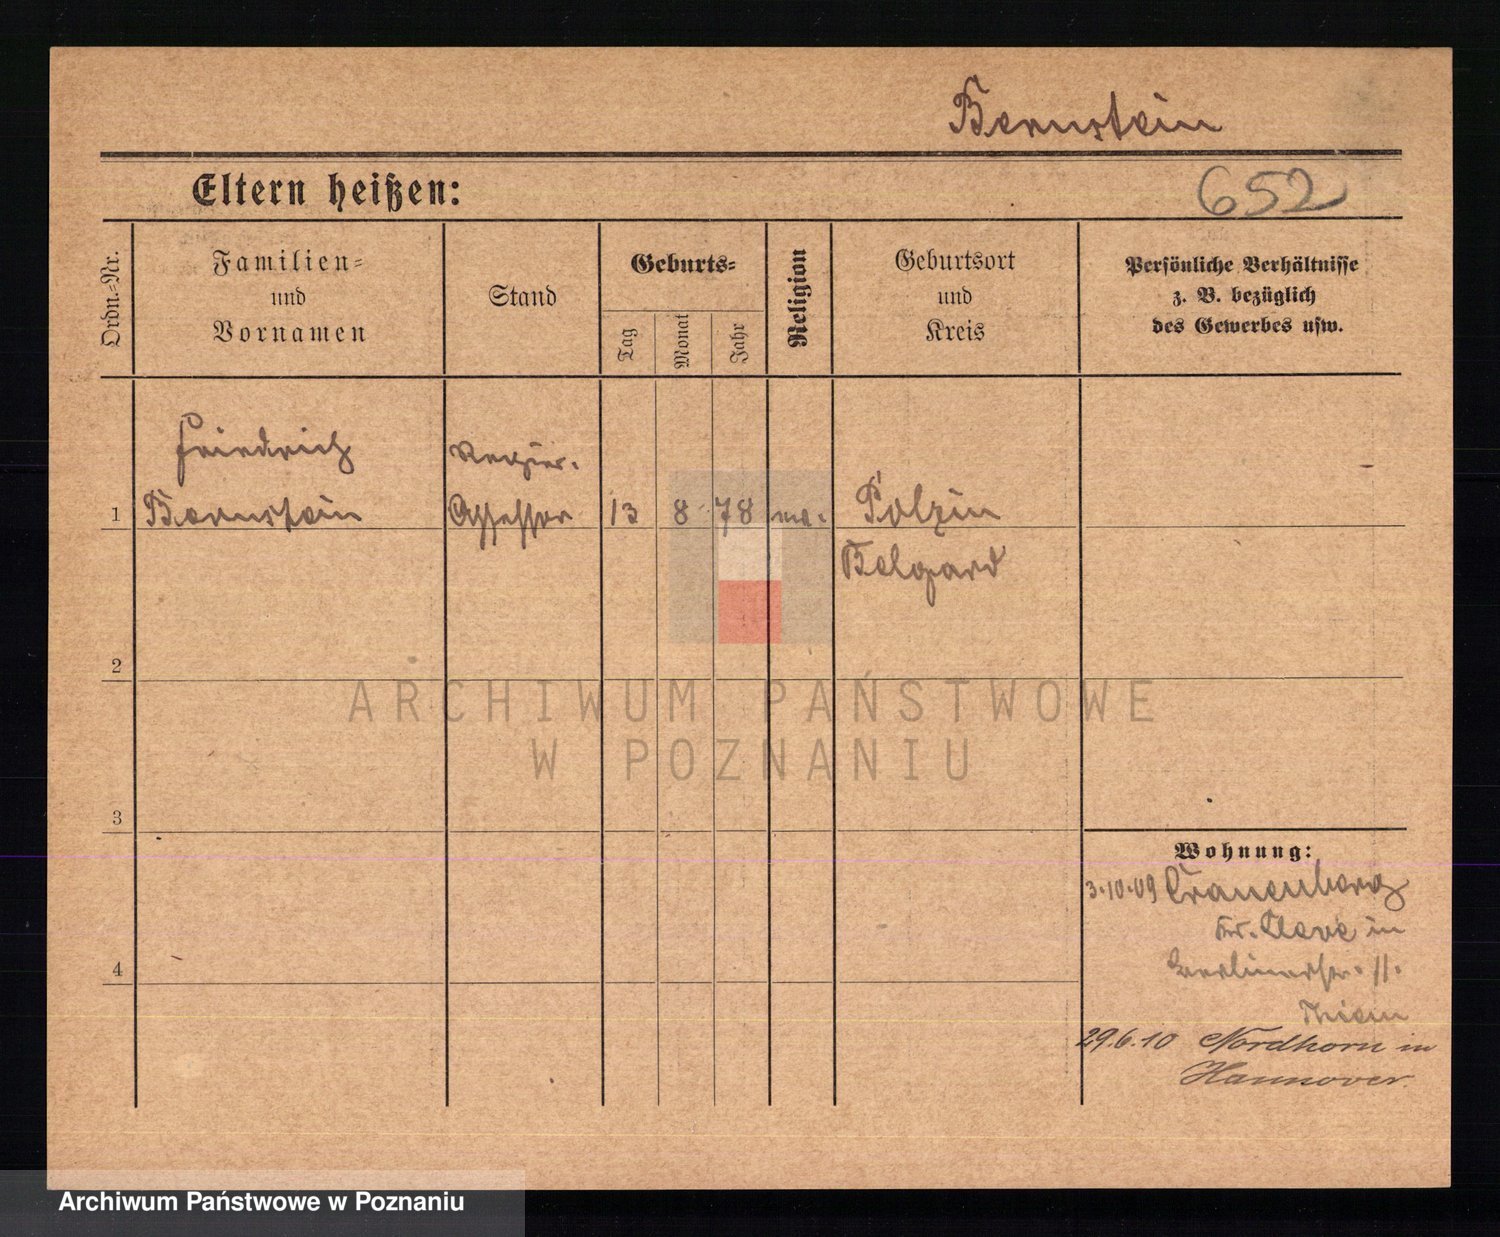 Bernstein
Eltern heißen:
652
Ordn.=Nr.
Familien=
und
Vornamen
Stand
Geburts=
Tag
Monat
Jahr
Religion
Geburtsort
und
Kreis
Persönliche Verhältnisse
z. B. bezüglich
des Gewerbes usw.
Friedrich
Bernstein
Regier.
Assessor
1
13
8
78
Polzin
Belgard
2
3
4
Wohnung:
3.10.09 Cranenberg
Kr. Cleve in
Berlinerstr. 11.
29.6.10 Nordhorn in
Hannover.
ARCHIWUM PAŃSTWOWE
W POZNANIU
Archiwum Państwowe w Poznaniu